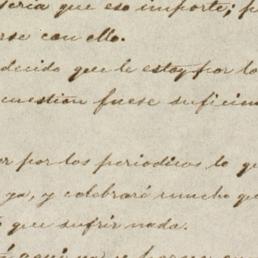 seria que eso importe; p
rse con ello.
decido que le estoy por lo
cuestion fuese suficien
ar por los periodicos lo qu
ya, y celebraré mucho qu
que sufrir nada.
aqui ya y porque